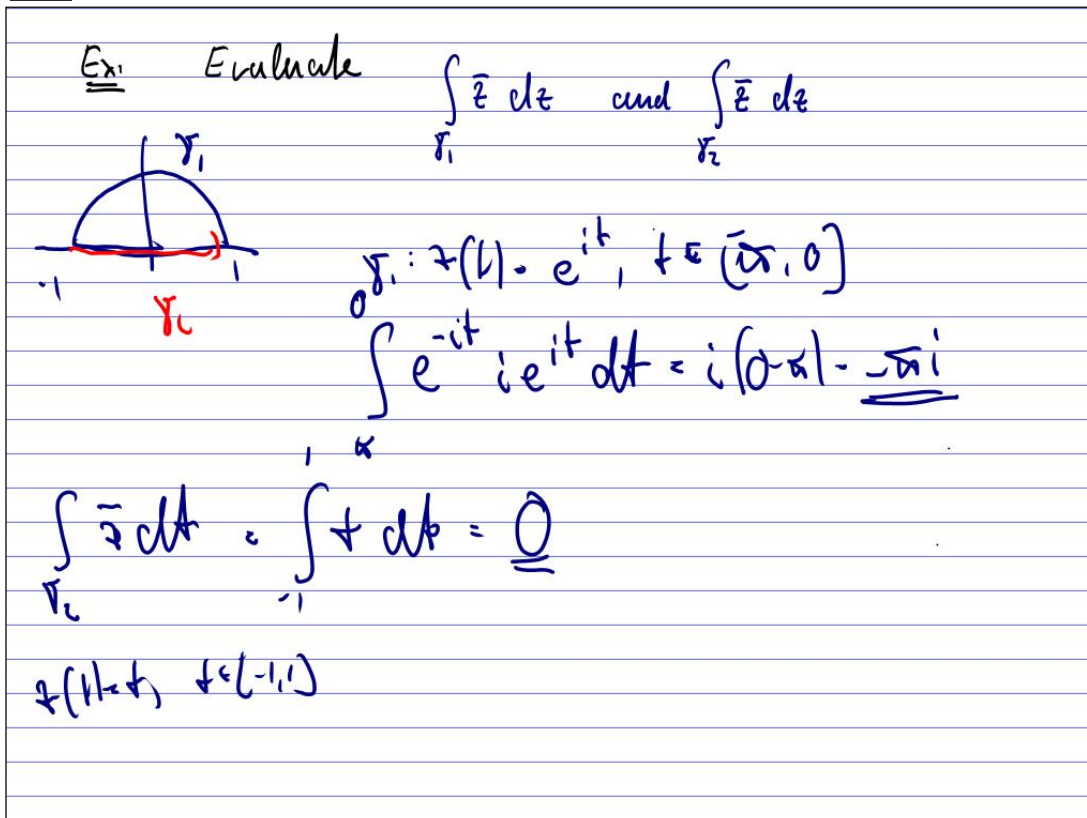 Ex: Evaluate ∫_{γ₁} z̄ dz and ∫_{γ₂} z̄ dz
γ₁
-1 1
γ₂
γ₁: z(t) = e^{it}, t ∈ [π, 0]
∫_π^0 e^{-it} i e^{it} dt = i(0-π) = -πi
∫_{γ₂} z̄ dt = ∫_{-1}^1 t dt = 0
z(t)=t, t∈[-1,1]